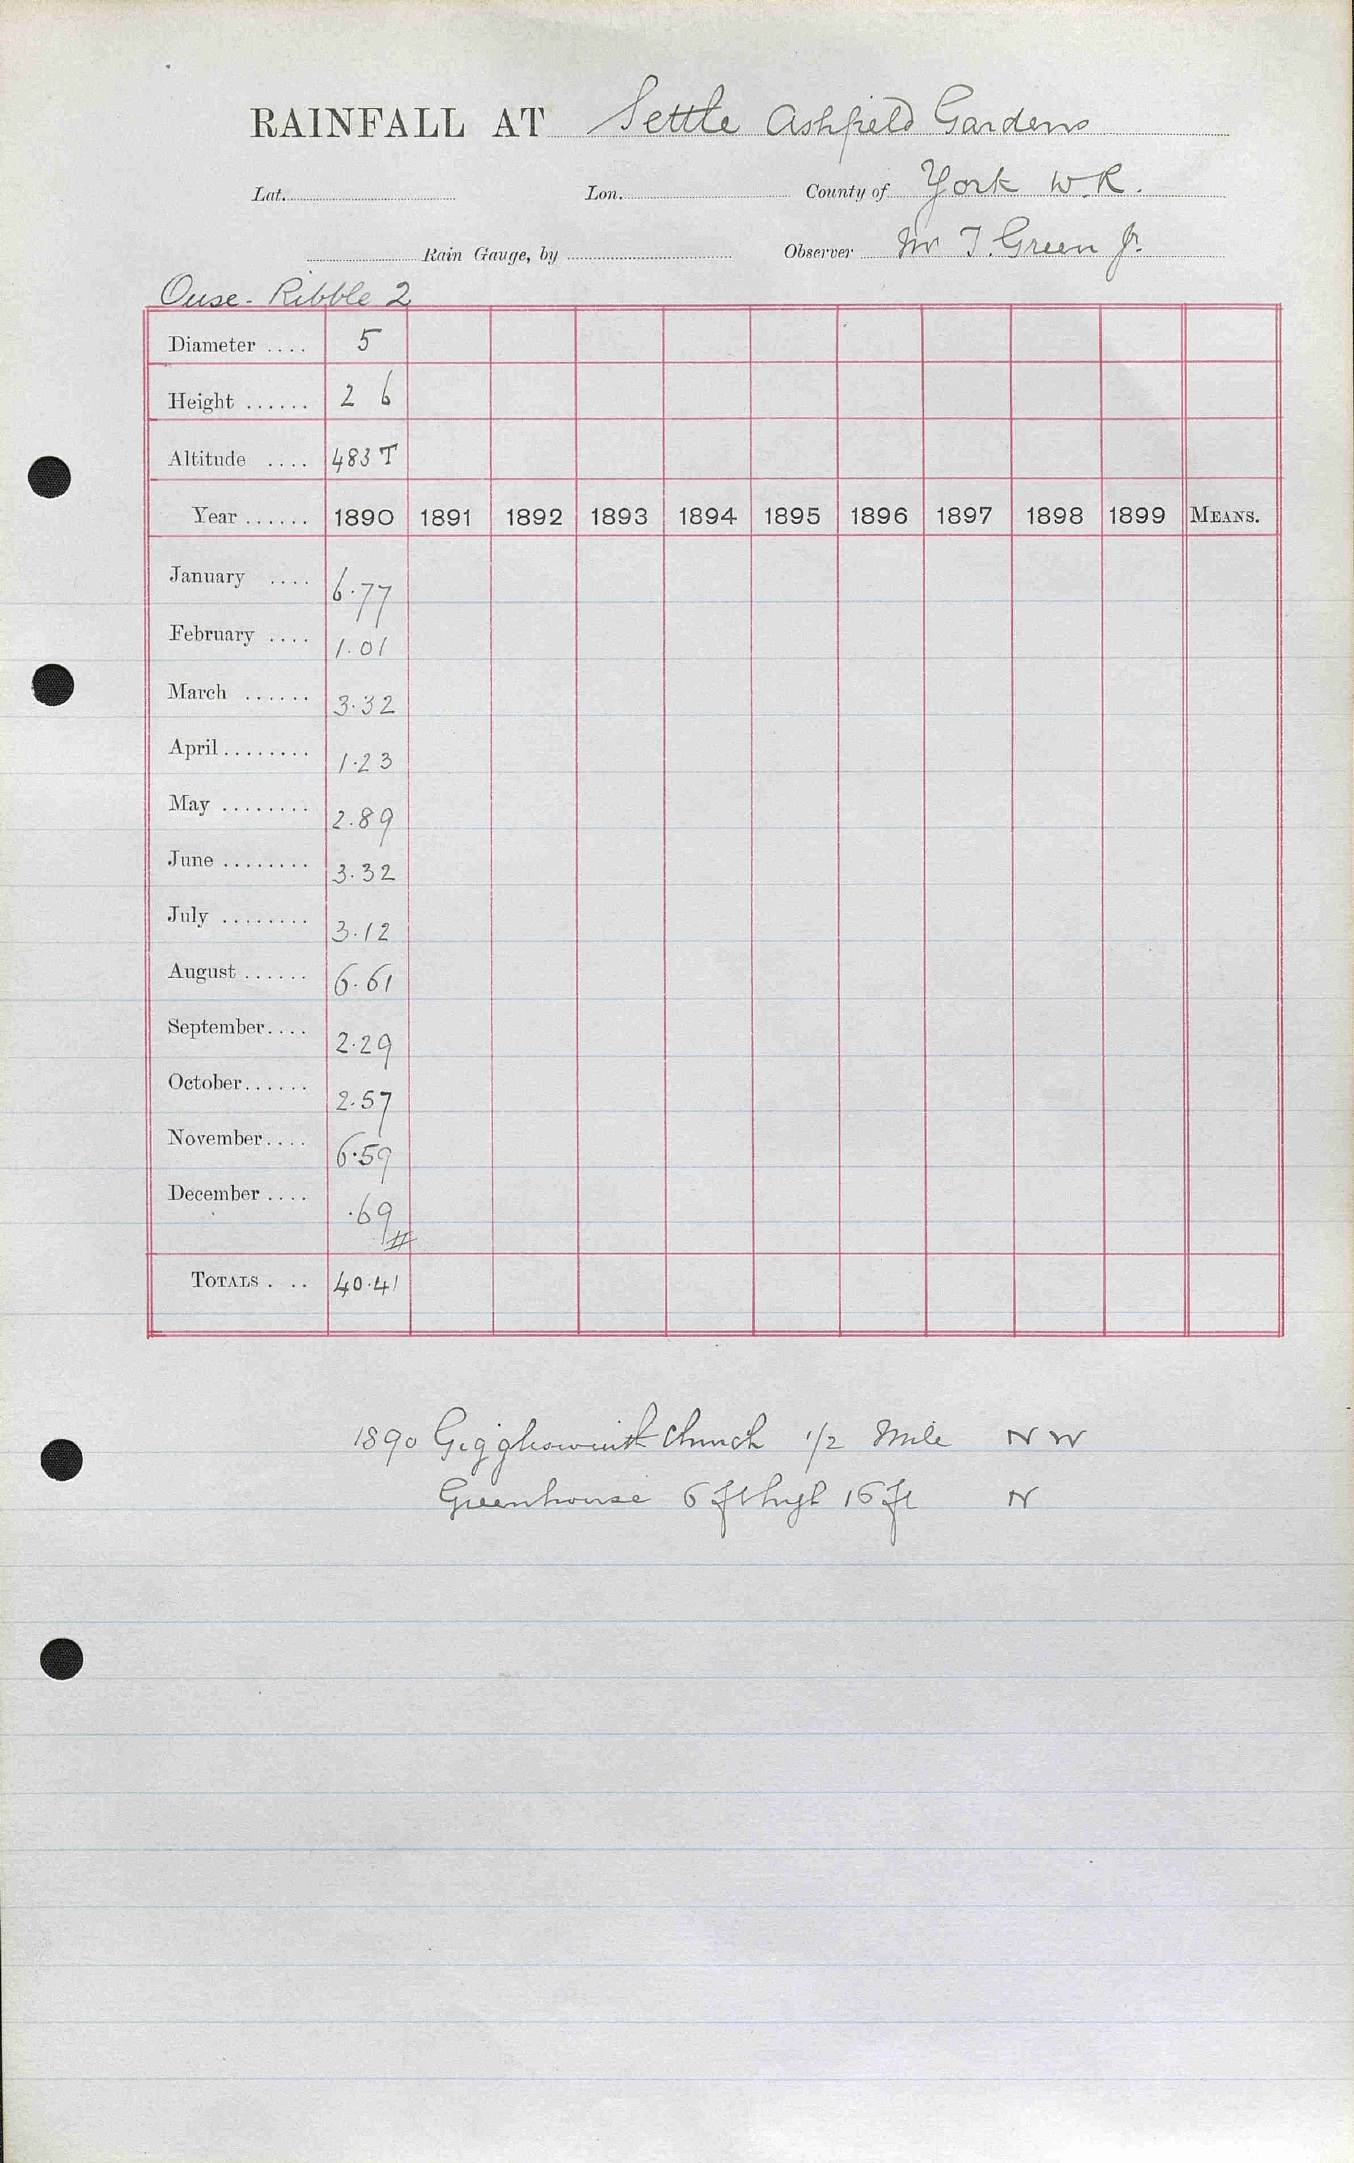 RAINFALL AT Settle Ashfield Gardens
Lat. Lon. County of York W.R.
Rain Gauge, by Observer Mr T. Green Jr.
Ouse - Ribble 2
Diameter .... 5
Height ...... 2 6
Altitude .... 483 T
Year ...... 1890 1891 1892 1893 1894 1895 1896 1897 1898 1899 MEANS.
January .... 6.77
February .... 1.01
March ...... 3.32
April ........ 1.23
May ........ 2.89
June ........ 3.32
July ........ 3.12
August ...... 6.61
September .... 2.29
October ...... 2.57
November .... 6.59
December .... .69
TOTALS . .. 40.41
1890 Church 1/2 Mile N W
Greenhouse 6 ft high 16 ft N